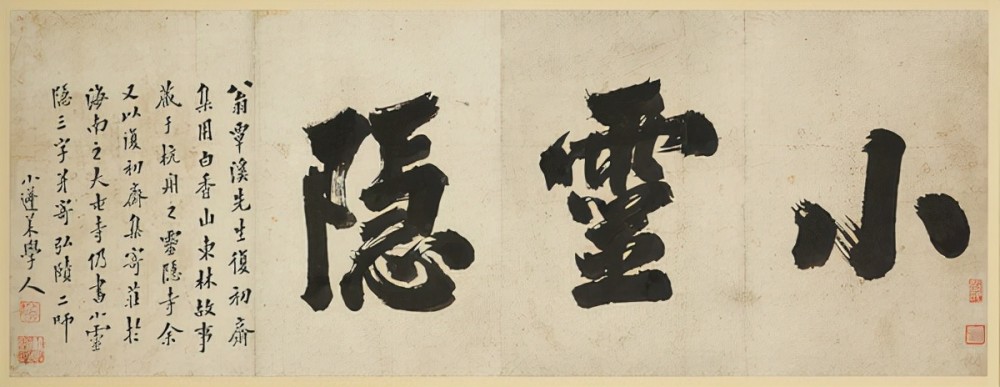 小靈隐
翁覃溪先生復初齋
集用白香山東林故事
藏于杭州之靈隐寺余
又以復初齋集寄莊於
海南之大芚寺仍書小靈
隐三字并寄弘賾二師
小蓬萊學人